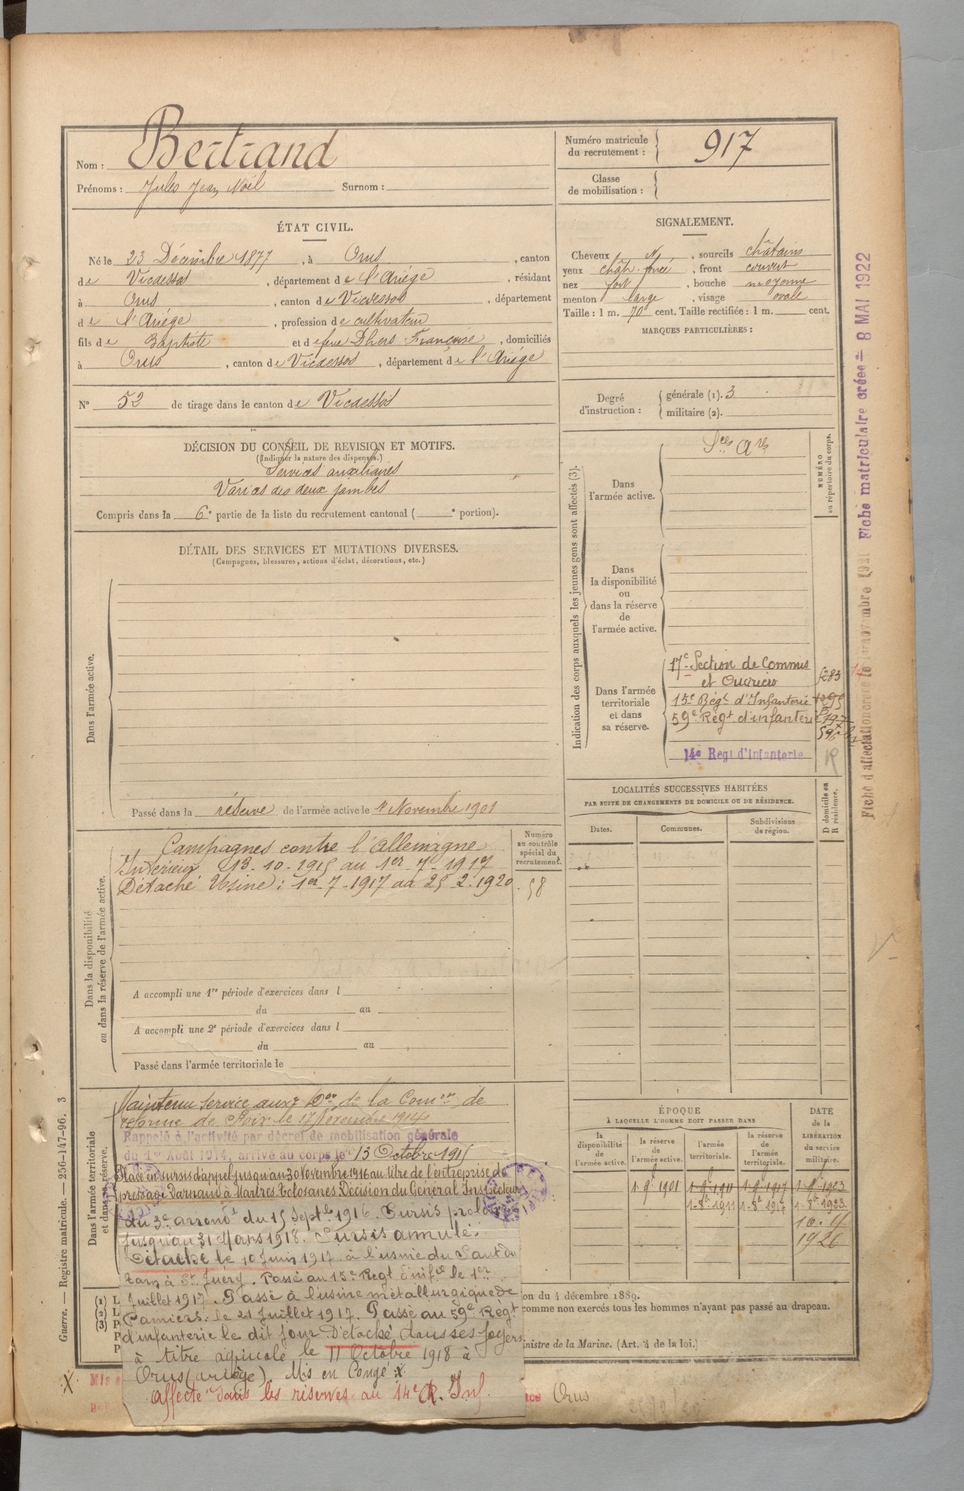 Nom : Bertrand
Prénoms : Jules Jean Noël Surnom :
Numéro matricule du recrutement : 917
Classe de mobilisation :
ÉTAT CIVIL.
Né le 23 Décembre 1877, à Orus, canton
de Vicdessos, département de l'Ariège, résidant
à Orus, canton de Vicdessos, département
de l'Ariège, profession de cultivateur
fils de Baptiste et de feue Dhers Françoise, domiciliés
à Orus, canton de Vicdessos, département de l'Ariège
N° 52 de tirage dans le canton de Vicdessos
SIGNALEMENT.
Cheveux N, sourcils châtains
yeux chât. foncé, front couvert
nez fort, bouche moyenne
menton large, visage ovale
Taille : 1 m. 70 cent. Taille rectifiée : 1 m. cent.
MARQUES PARTICULIÈRES :
Degré d'instruction : générale (1). 3
militaire (2).
DÉCISION DU CONSEIL DE REVISION ET MOTIFS.
(Indiquer la nature des dispenses.)
Services auxiliaires
Varices des deux jambes
Compris dans la 6e partie de la liste du recrutement cantonal ( e portion).
DÉTAIL DES SERVICES ET MUTATIONS DIVERSES.
(Campagnes, blessures, actions d'éclat, décorations, etc.)
Dans l'armée active.
Passé dans la réserve de l'armée active le 1er Novembre 1901
Indication des corps auxquels les jeunes gens sont affectés (3).
NUMÉRO au répertoire du corps.
Dans l'armée active.
Dans la disponibilité ou dans la réserve de l'armée active.
Dans l'armée territoriale et dans sa réserve.
17e Section de Commis
et Ouvriers
15e Régt d'Infanterie
59e Régt d'infanterie
14e Regt d'infanterie
LOCALITÉS SUCCESSIVES HABITÉES
PAR SUITE DE CHANGEMENTS DE DOMICILE OU DE RÉSIDENCE.
Dates. Communes. Subdivisions de région. D domicile ou R résidence.
Dans la disponibilité ou dans la réserve de l'armée active.
Numéro au contrôle spécial du recrutement.
58
Campagnes contre l'Allemagne
Intérieur 13-10-1915 au 1er-7-1917
Détaché Usine : 1er-7-1917 au 25-2-1920
A accompli une 1re période d'exercices dans l
du au
A accompli une 2e période d'exercices dans l
du au
Passé dans l'armée territoriale le
Dans l'armée territoriale et dans sa réserve.
Maintenu service auxre Don de la Comon de
réforme de Foix le 17 Novembre 1914
Rappelé à l'activité par décret de mobilisation générale
du 1er Août 1914, arrivé au corps le 13 Octobre 1915
Placé en sursis d'appel jusqu'au 30 Novembre 1916 au titre de l'entreprise de
pressage Darnaud à Mazères Tolosanes Décision du Général Inspecteur
du 3e arrondt du 15 Septbre 1916. Sursis prolongé
jusqu'au 31 Mars 1918. Sursis annulé.
Détaché le 10 Juin 1917 à l'usine du Saut du
Tarn à St Juéry. Passé au 15e Regt d'infie le 1er
Juillet 1917. Passé à l'usine métallurgique de
Pamiers le 21 Juillet 1917. Passé au 59e Regt
d'infanterie le dit jour. Détaché dans ses foyers
à titre agricole le 11 Octobre 1918 à
Orus (Ariège). Mis en Congé
affecté dans les réserves au 14e R. Inf.
ÉPOQUE
À LAQUELLE L'HOMME DOIT PASSER DANS
la disponibilité de l'armée active. la réserve de l'armée active. l'armée territoriale. la réserve de l'armée territoriale.
DATE de la LIBÉRATION du service militaire.
on du 4 décembre 1889.
comme non exercés tous les hommes n'ayant pas passé au drapeau.
nistre de la Marine. (Art. 3 de la loi.)
Orus
Guerre. — Registre matricule. — 256-147-96. 3
Fiche matriculaire créée — 8 MAI 1922